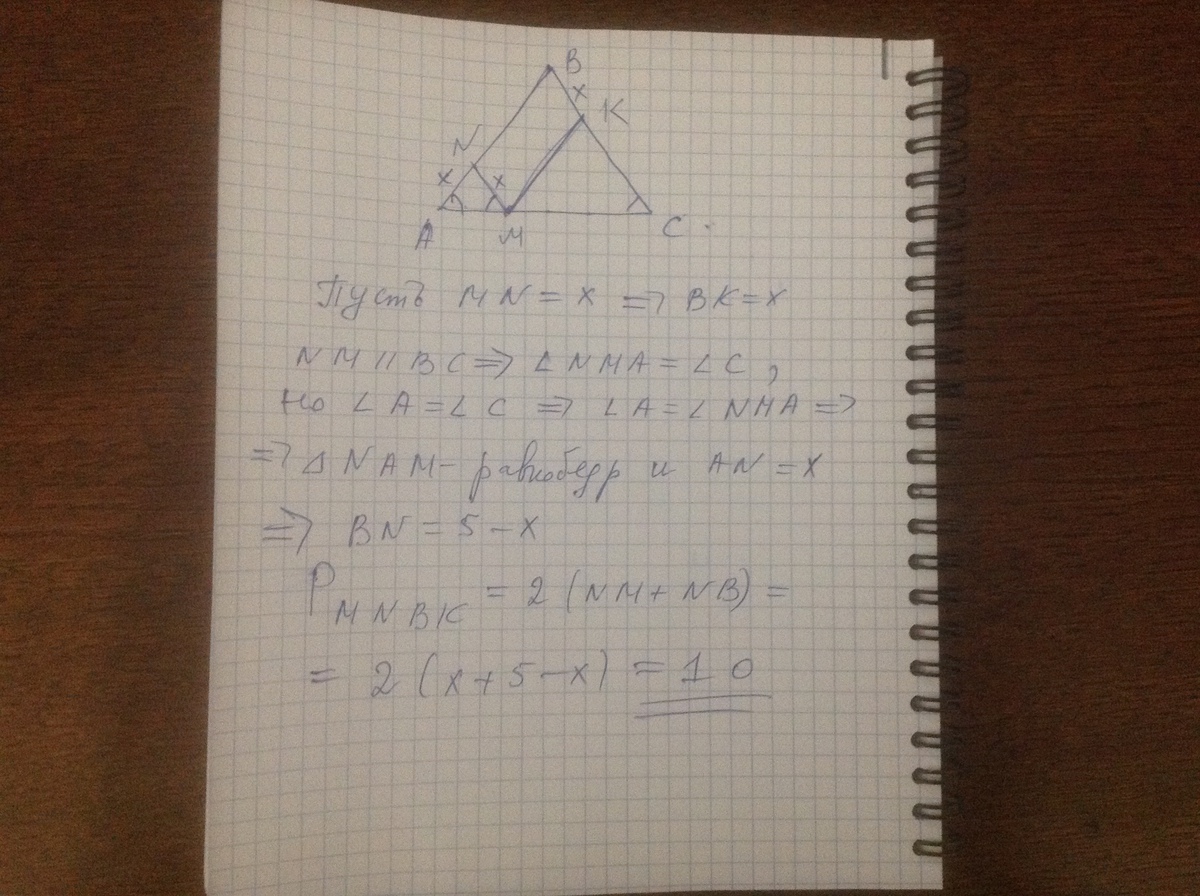 B
x
K
N
x
x
A
M
C
Пусть MN = x ⇒ BK = x
NM || BC ⇒ ∠ NMA = ∠ C ,
но ∠ A = ∠ C ⇒ ∠ A = ∠ NMA ⇒
⇒ △ NAM - равнобедр и AN = x
⇒ BN = 5 - x
P MNBK = 2 (NM + NB) =
= 2 (x + 5 - x) = 10